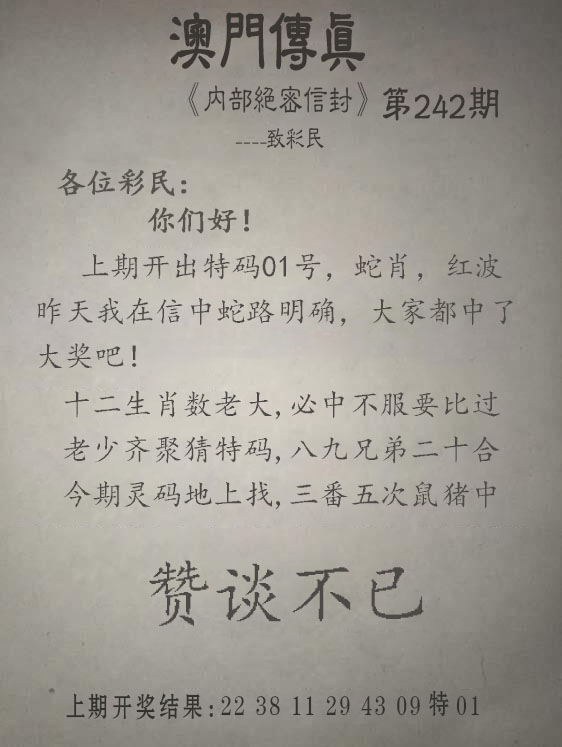 澳門傳真
《内部絕密信封》第242期
----致彩民
各位彩民：
你们好！
上期开出特码01号，蛇肖，红波
昨天我在信中蛇路明确，大家都中了
大奖吧！
十二生肖数老大,必中不服要比过
老少齐聚猜特码,八九兄弟二十合
今期灵码地上找,三番五次鼠猪中
赞谈不已
上期开奖结果:22 38 11 29 43 09 特 01